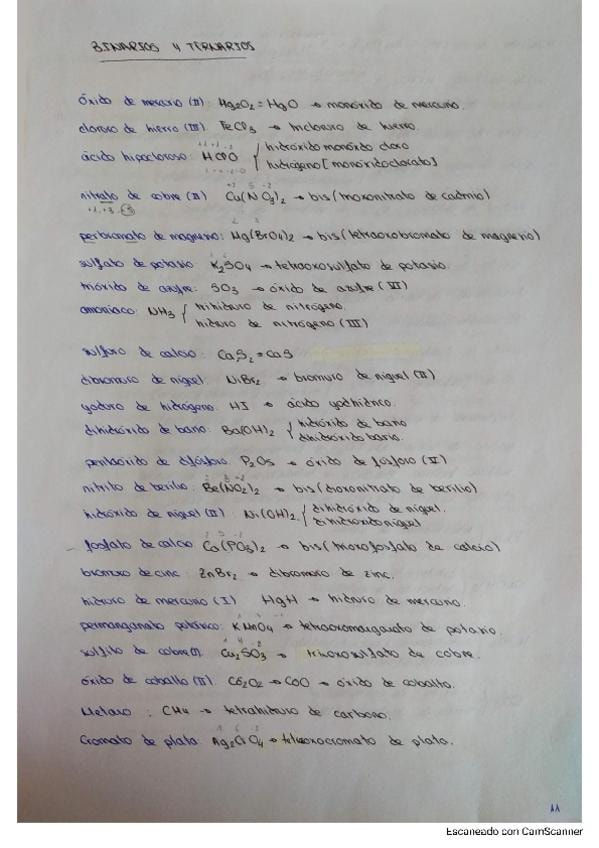 BINARIOS Y TERNARIOS
óxido de mercurio (II): Hg2O2 = HgO → monóxido de mercurio.
cloruro de hierro (III): FeCl3 → tricloruro de hierro.
ácido hipocloroso: HClO { hidróxido monóxido cloro
hidrógeno [monóxidoclorato]
nitrato de cobre (II) Cu(NO3)2 → bis(trioxonitrato de cadmio)
+1, +3, +5
perbromato de magnesio: Mg(BrO4)2 → bis(tetraoxobromato de magnesio)
sulfato de potasio: K2SO4 → tetraoxosulfato de potasio.
trióxido de azufre: SO3 → óxido de azufre (VI)
amoniaco: NH3 { trihidruro de nitrógeno.
hidruro de nitrógeno (III)
sulfuro de calcio: Ca2S2 = CaS
dibromuro de níquel: NiBr2 → bromuro de níquel (II)
yoduro de hidrógeno: HI → ácido yodhídrico.
dihidróxido de bario: Ba(OH)2 { hidróxido de bario
dihidróxido bario.
pentaóxido de difósforo: P2O5 → óxido de fósforo (V)
nitrito de berilio: Be(NO2)2 → bis(dioxonitrato de berilio)
hidróxido de níquel (II): Ni(OH)2 { dihidróxido de níquel.
dihidroxidoníquel
fosfato de calcio: Ca(PO3)2 → bis(trioxofosfato de calcio)
bromuro de cinc: ZnBr2 → dibromuro de zinc.
hidruro de mercurio (I) HgH → hidruro de mercurio.
permanganato potásico: KMnO4 → tetraoxomanganato de potasio.
sulfito de cobre(I): Cu2SO3 → trioxosulfato de cobre.
óxido de cobalto (II): Co2O2 → CoO → óxido de cobalto.
Metano : CH4 → tetrahidruro de carbono.
Cromato de plata: Ag2CrO4 → tetraoxocromato de plata.
11
Escaneado con CamScanner